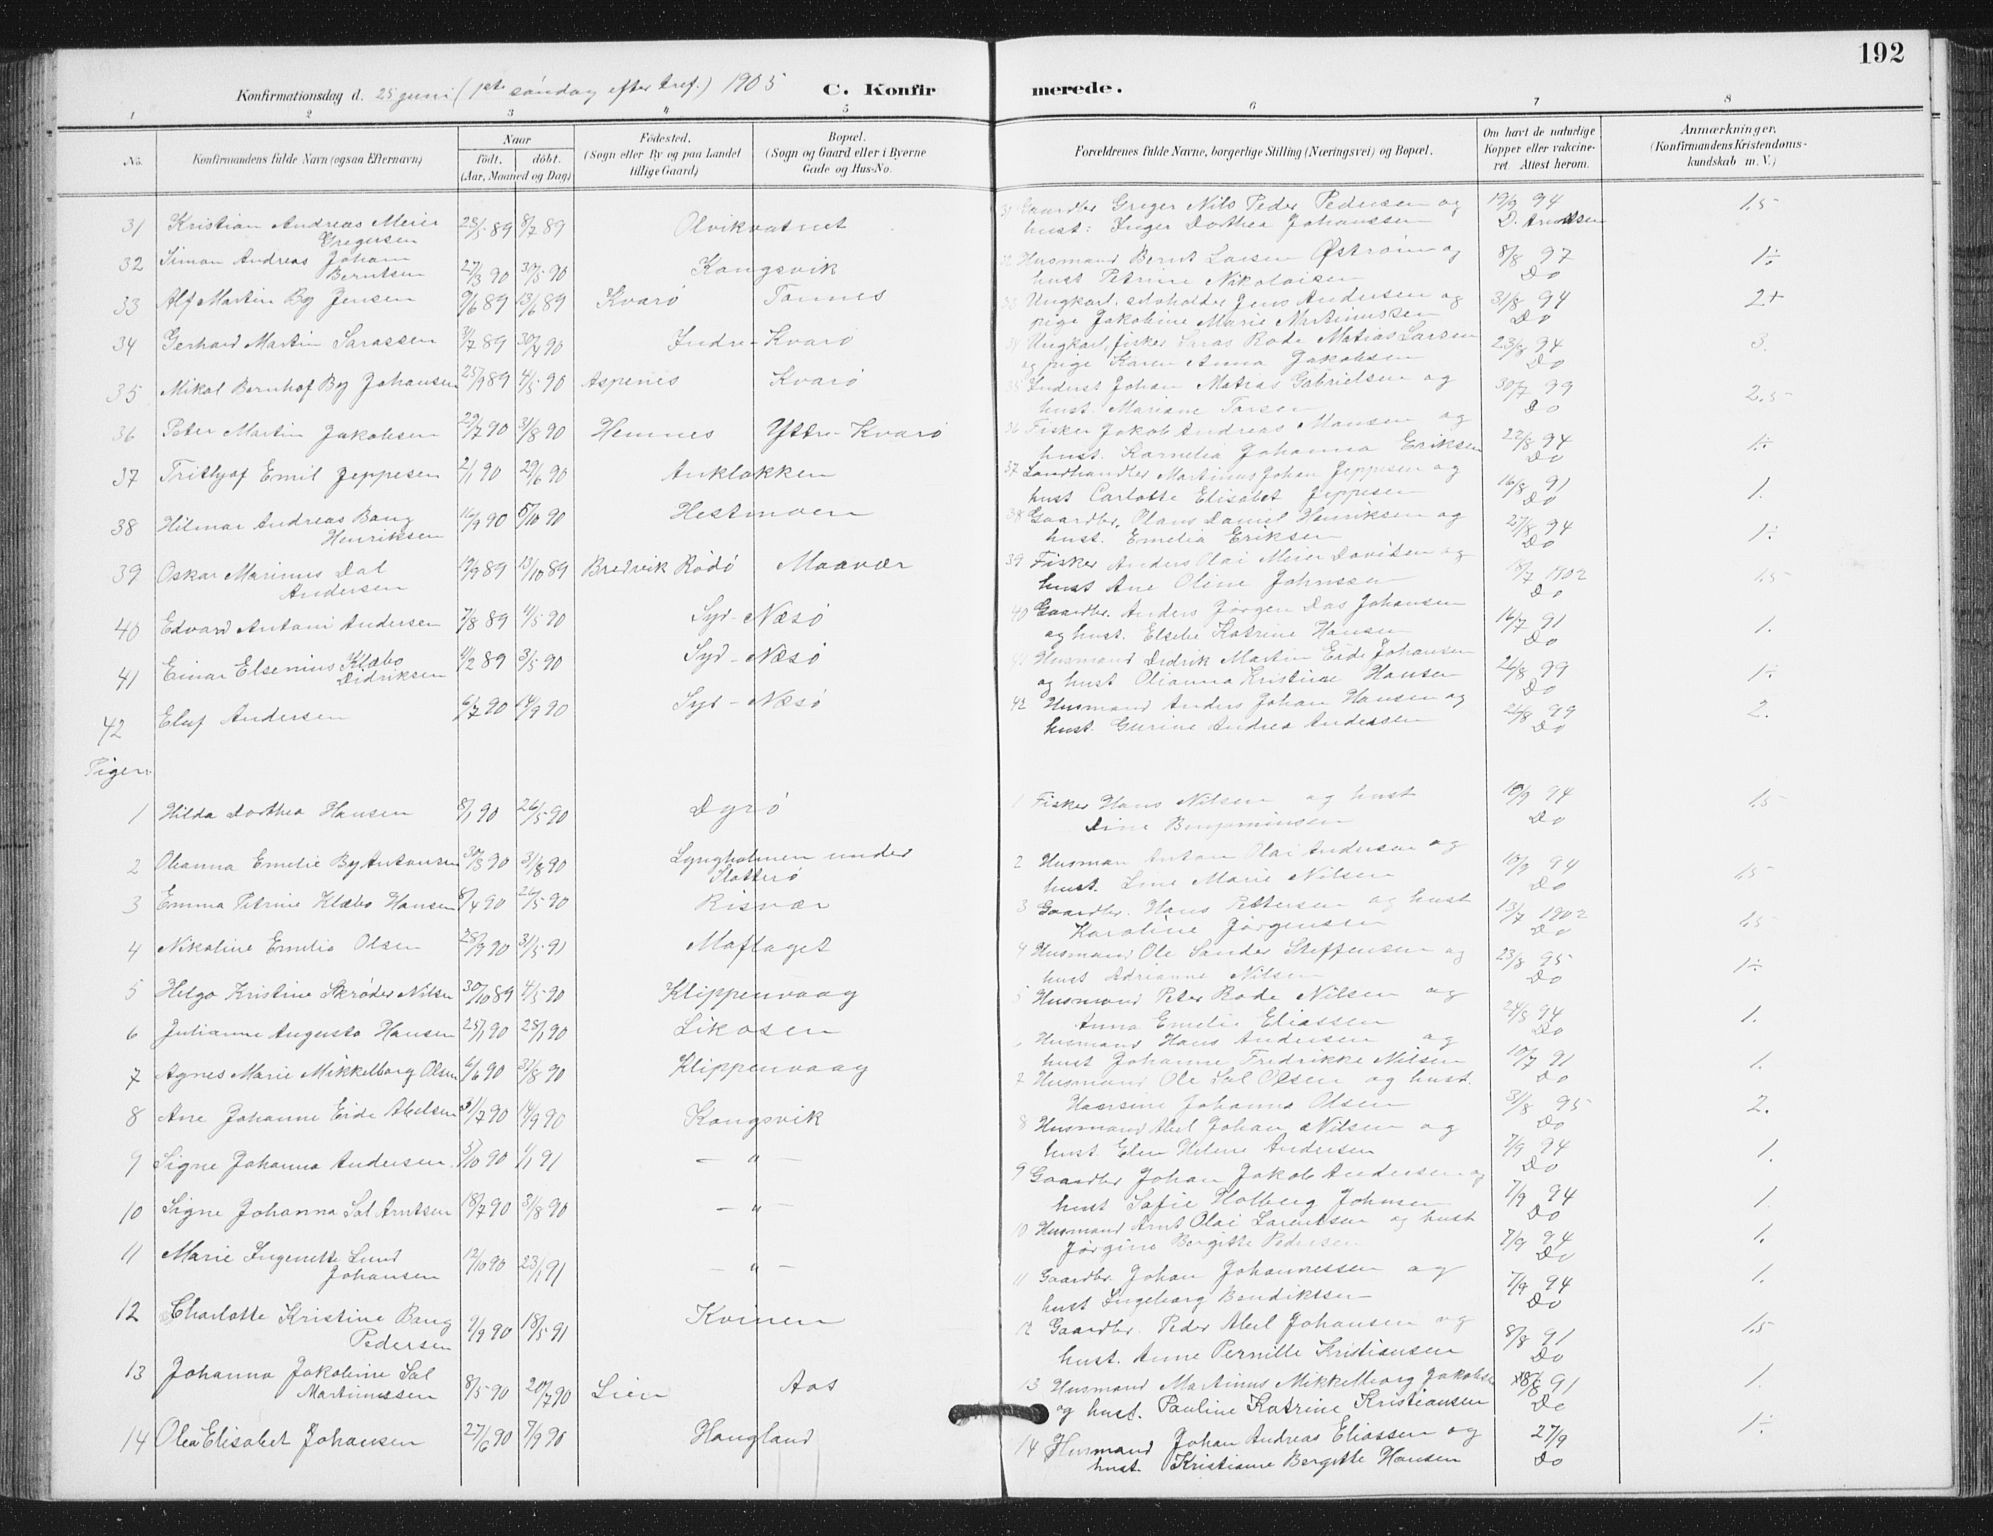 192
Konfirmationsdag d. 25 juni (1ste søndag efter tref.) 1905 C. Konfir merede.
1 2 3 4 5 6 7 8
No. Konfirmandens fulde Navn (ogsaa Efternavn) Naar født, døbt. (Aar, Maaned og Dag) Fødested. (Sogn eller By og paa Landet tillige Gaard) Bopæl. (Sogn og Gaard eller i Byerne Gade og Hus-No. Forældrenes fulde Navne, borgerlige Stilling (Næringsvei) og Bopæl. Om havt de naturlige Kopper eller vaccineret. Attest herom. Anmærkninger, (Konfirmandens Kristendomskundskab m. V.)
31 Kristian Andreas Meier 8/7 89 Olvikvatnet 31 Gaardbr Greger Nils Peder Pedersen og 19/9 94 1.5
Gregersen hust: Inger Dorthea Johanssen D. Arndtsen
32 Simon Andreas Johan 27/3 90 30/5 90 Kongsvik Husmand Bernt Larsen Østrøm og 8/8 97 1÷
Berntsen hust Petrine Nikolaisen Do
33 Alf Martin By Jensen 9/6 89 13/6 89 Kvarø Tonnes 33 Ungkarl, selvholder Jens Andersen og 31/8 94 2+
pige Jakobine Marie Martinussen Do
34 Gerhard Martin Sarassen 31/7 89 30/4 90 Indre-Kvarø Ungkarl, fisker Saras Rode Matias Larsen 23/8 94 3.
og pige Karen Anna Jakobsen Do
35 Mikal Bernhof By Johansen 25/9 89 4/5 90 Aspenes Kvarø 35 Inderst Johan Matias Gabrielsen og 30/7 99 2.5
hust. Mariane Do
36 Peter Martin Jakobsen 29/7 90 31/8 90 Hemnes Yttre-Kvarø 36 Fisker Jakob Andreas Hansen og 22/8 94 1÷
hust. Kornelia Johanna Eriksen Do
37 Trithjof Emil Jeppesen 2/1 90 29/6 90 Anklakken 37 Landhandler Martinus Johan Jeppesen og 16/8 91 1.
hust Carlotte Elisabet Jeppesen Do
38 Hilmar Andreas Bang 16/9 90 5/10 90 Hestmoen 38 Gaardbr. Olaus Daniel Henriksen og 27/8 94 1÷
Henriksen hust. Emelia Eriksen Do
39 Oskar Marinus Dal 19/9 89 13/10 89 Bredvik Rødø Maavær 39 Fisker Anders Olai Meier Davidsen og 18/7 1902 1.5
Andersen hust Ane Oline Johnssen Do
40 Edvard Antoni Andersen 7/8 89 4/5 90 Syd-Næsø 40 Gaardbr. Anders Jørgen Das Johansen 16/7 91 1.
og hust. Elsebe Katrine Hansen Do
41 Einar Elsenius Klæbo 4/2 89 3/5 90 Syd-Næsø Husmand Didrik Martin Eide Johansen 26/8 99 1÷
Didriksen og hust Olianna Kristine Hansen Do
42 Eluf Andersen 6/7 90 14/9 90 Syd-Næsø 42 Husmand Anders Johan Hansen og 26/8 99 2.
hust. Gurine Andrea Andersen Do
Piger:
1 Hilda Dorthea Hansen 8/1 90 26/5 90 Dyrø 1 Fisker Hans Nilsen og hust 19/9 94 1.5
Dine Benjaminsen Do
2 Olianna Emelie By Antonsen 30/3 90 31/8 90 Lyngholmen under 2 Husman Anton Olai Andersen og 19/9 94 1.5
Slotterø hust. Line Marie Nilsen Do
3 Emma Petrine Klæbo Hansen 8/4 90 26/5 90 Risvær 3 Gaardbr. Hans Pettersen og hust 13/7 1902 1.5
Karoline Jørgensen Do
4 Nikoline Emelie Olsen 28/9 90 31/5 91 Moflaget 4 Husmand Ole Sander Steffensen og 23/8 95 1÷
hust Adrianne Nilsen Do
5 Helga Kristine Skrøder Nilsen 30/10 89 4/5 90 Klippenvaag 5 Husmand Peter Rode Nilsen og 24/8 94 1.
Anna Emelie Eliassen Do
6 Julianne Augusta Hansen 25/1 90 28/1 90 Likosen Husmand Hans Andersen og 10/7 91 1.
hust Johanne Fredrikke Nilsen Do
7 Agnes Marie Mikkelborg Olsen 6/6 90 31/8 90 Klippenvaag 7 Husmand Ole Sal Olsen og hust. 31/8 95 2.
Johanna Olsen Do
8 Ane Johanne Eide Abelsen 31/7 90 14/9 90 Kongsvik 8 Husmand Abel Johan Nilsen og 7/9 94 1.
hust Elen Helene Andersen Do
9 Signe Johanna Andersen 5/10 90 1/1 91 — " — 9 Gaardbr Johan Jakob Andersen og 7/9 94 1.
hust Safie Holberg Johnsen Do
10 Signe Johanna Sal Arntsen 18/7 90 31/8 90 — " — 10 Husmand Arnt Olai Larentsen og hust 7/9 94 1.
Jørgine Bergitte Pedersen Do
11 Marie Ingenette Lund 12/10 90 23/1 91 — " — 11 Gaardbr. Johan Johannessen og 7/9 94 1.
Johansen hust Ingeborg Bendiktsen Do
12 Charlotte Kristine Bang 7/9 90 18/5 91 Kvinen 12 Gaardbr. Peder Abel Johansen og 8/8 91 1.5
Pedersen hust. Anne Pernille Kristiansen Do
13 Johanna Jakobine Sal 8/5 90 20/7 90 Lien Aas 13 Husmand Martinus Mikkelborg Jakobsen 91 1.
Martinussen og hust. Pauline Katrine Kristiansen Do
14 Olea Elisabet Johansen 27/6 90 7/9 90 Haugland 14 Husmand Johan Andreas Eliassen og 27/9 1÷
hust. Kristiane Bergitte Hansen Do